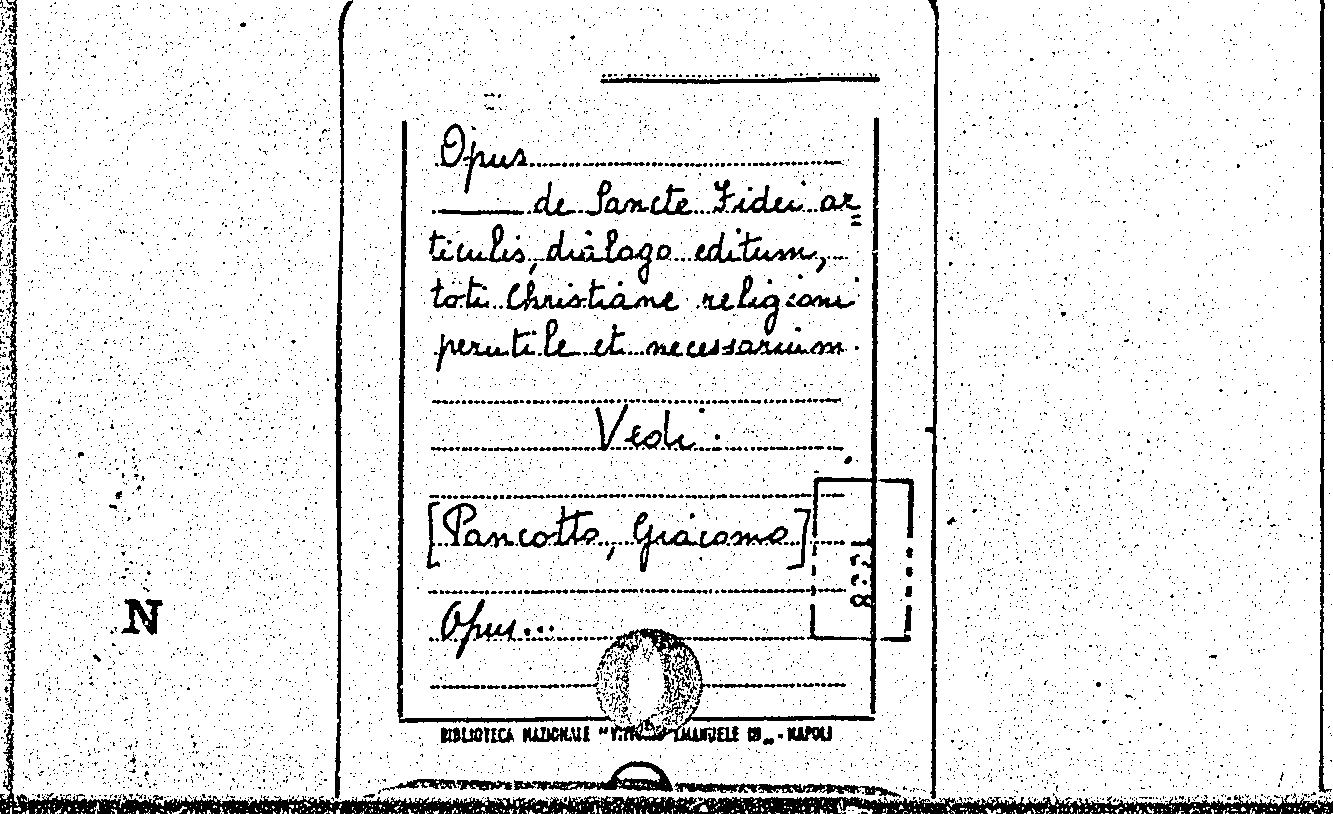 Opus
de Sancte Fidei ar=
ticulis, dialogo editum,
toti Christiane religioni
perutile et necessarium.
Vedi:
[Pancotto, Giacomo]
Opus...
N
BIBLIOTECA NAZIONALE "VITTORIO EMANUELE III" - NAPOLI